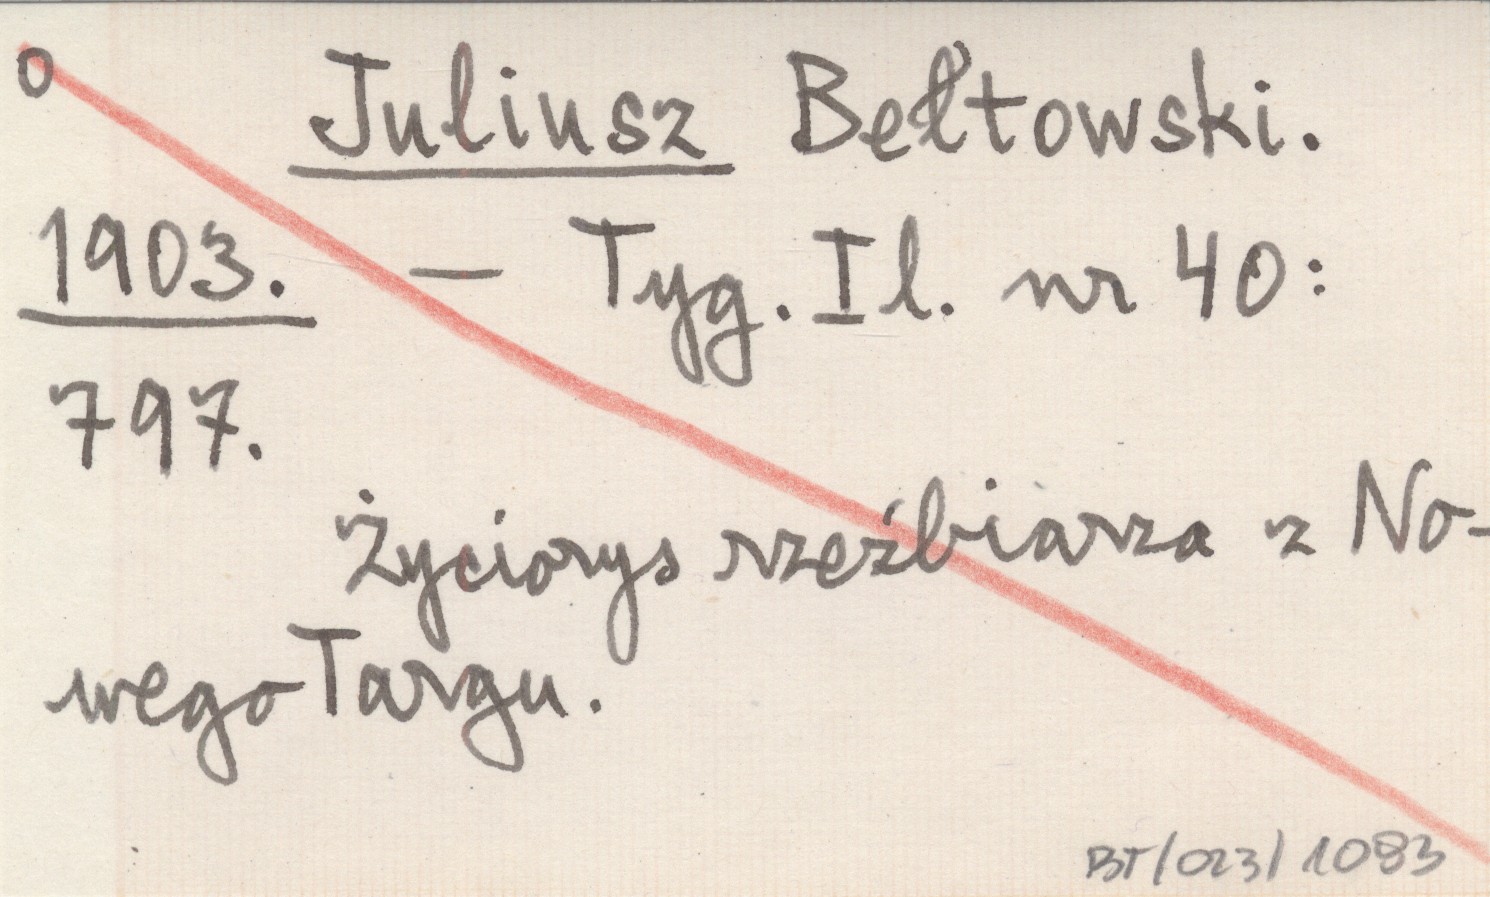 o Juliusz Bełtowski.
1903. — Tyg. Il. nr 40:
797.
Życiorys rzeźbiarza z No-
wego Targu.
BT/023/1083